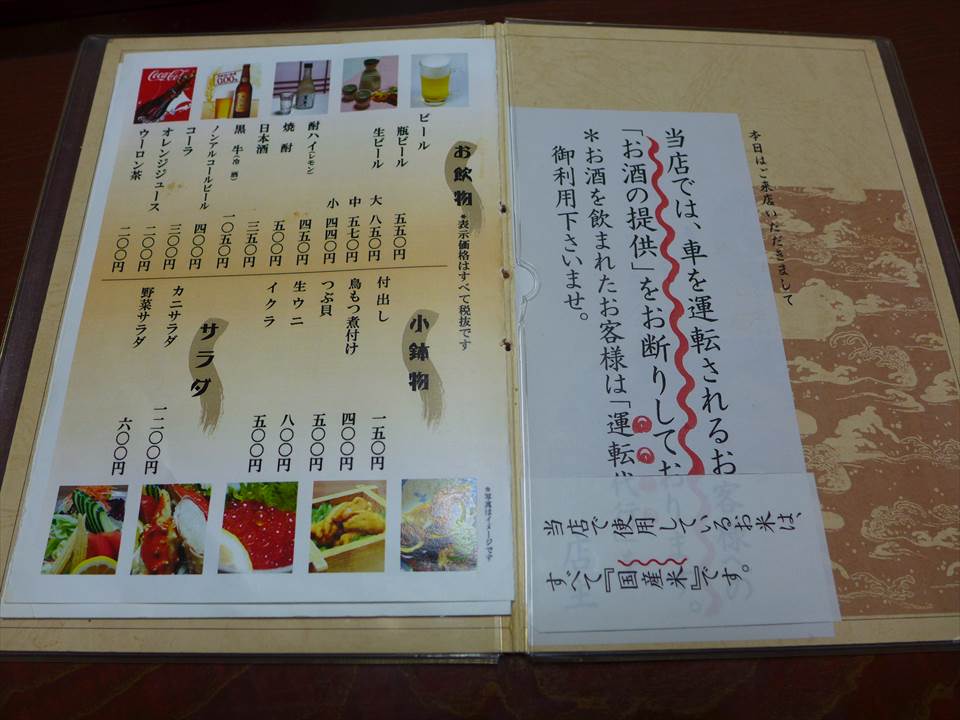 本日はご来店いただきまして
当店では、車を運転されるお客様の
「お酒の提供」をお断りしております。
＊お酒を飲まれたお客様は「運転代
御利用下さいませ。
当店で使用しているお米は、
すべて『国産米』です。
お飲物 ●表示価格はすべて税抜です
ビール
瓶ビール 五五〇円
生ビール 大 八五〇円
中 五七〇円
小 四四〇円
酎ハイ(レモン) 四五〇円
焼酎 五〇〇円
日本酒 三五〇円
黒牛(冷酒) 一〇五〇円
ノンアルコールビール 四〇〇円
コーラ 三〇〇円
オレンジジュース 二〇〇円
ウーロン茶 二〇〇円
小鉢物
付出し 一五〇円
鳥もつ煮付け 四〇〇円
つぶ貝 五〇〇円
生ウニ 八〇〇円
イクラ 五〇〇円
サラダ
カニサラダ 一二〇〇円
野菜サラダ 六〇〇円
＊写真はイメージです
Coca-Cola
0.00%